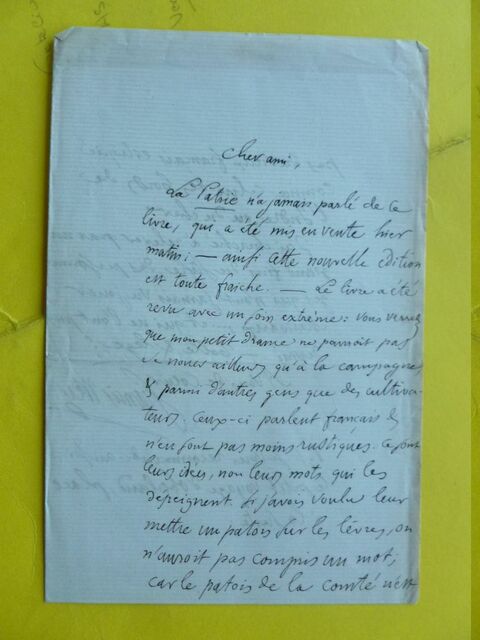 Cher ami,
La Patrie n'a jamais parlé de ce
livre, qui a été mis en vente hier
matin; — ainsi cette nouvelle édition
est toute fraîche. — Le livre a été
revu avec un soin extrême: vous verrez
que mon petit drame ne pouvoit pas
se nouer ailleurs qu'à la campagne
& parmi d'autres gens que des cultiva-
teurs. Ceux-ci parlent français &
n'en sont pas moins rustiques. Ce sont
leurs idées, non leurs mots qui les
dépeignent. Si j'avois voulu leur
mettre un patois sur les lèvres, on
n'auroit pas compris un mot;
car le patois de la comté n'est